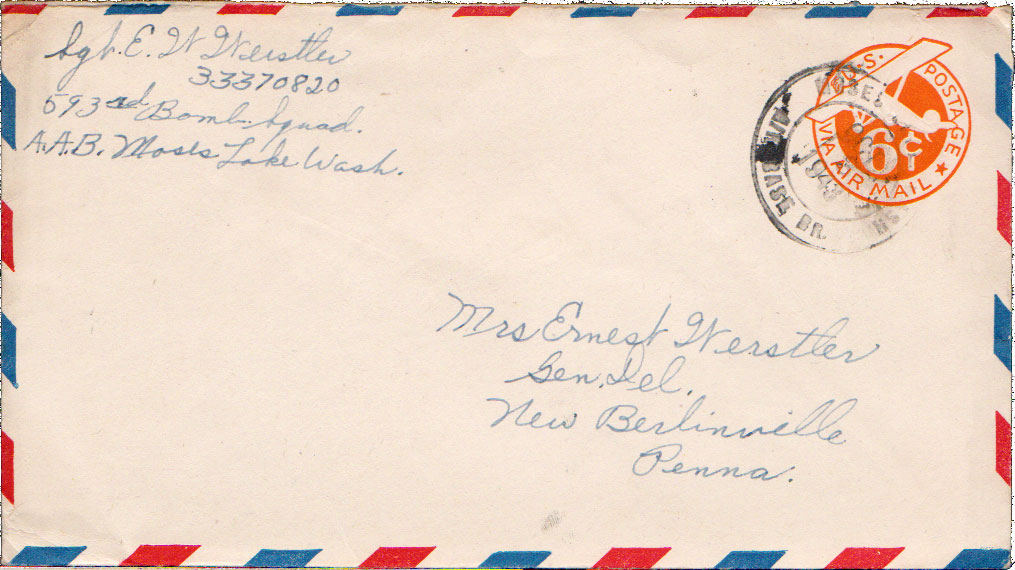 Sgt. E. W Werstler
33370820
593rd Bomb. Squad.
A.A.B. Moses Lake Wash.
U.S. POSTAGE
6¢
VIA AIR MAIL
MOSES
AIR BASE BR.
194
Mrs Ernest Werstler
Gen. Del.
New Berlinville
Penna.